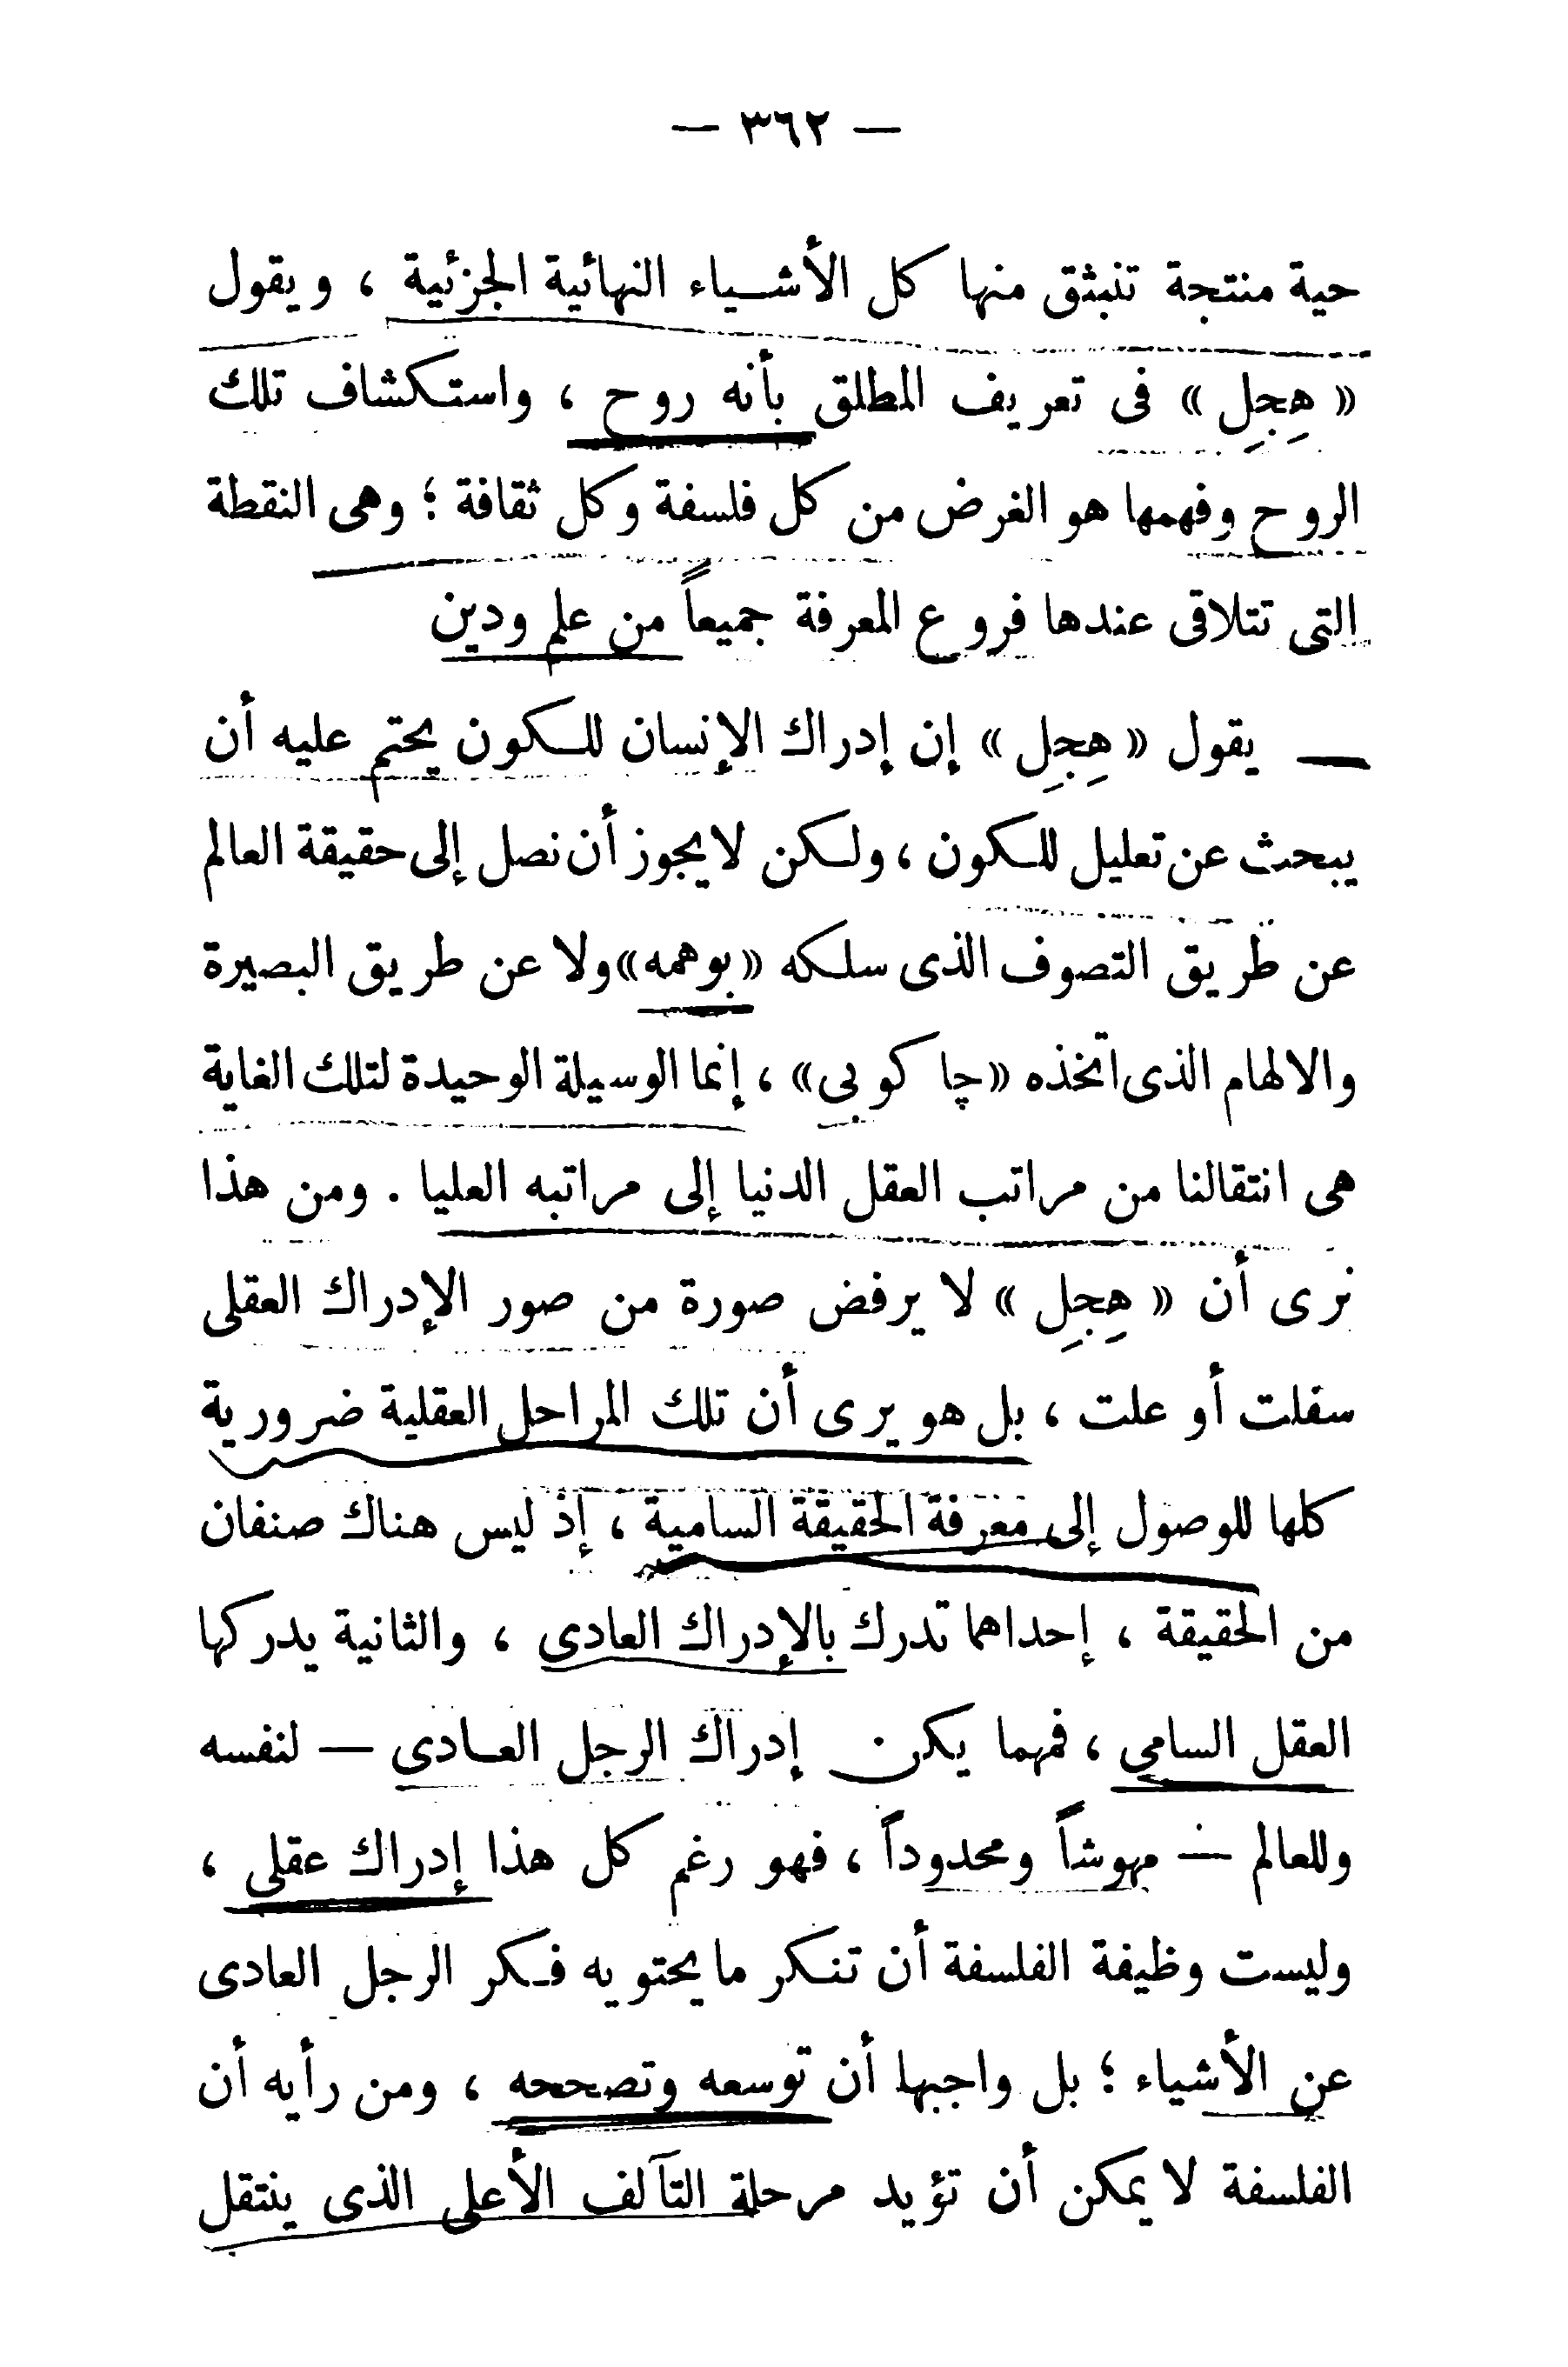 — ٣٦٢ —
حية منتجة تنبثق منها كل الأشياء النهائية الجزئية ، ويقول
« هِجِل » فى تعريف المطلق بأنه روح ، واستكشاف تلك
الروح وفهمها هو الغرض من كل فلسفة وكل ثقافة ؛ وهى النقطة
التى تتلاقى عندها فروع المعرفة جميعاً من علم ودين
يقول « هِجِل » إن إدراك الإنسان للكون يحتم عليه أن
يبحث عن تعليل للكون ، ولكن لا يجوز أن نصل إلى حقيقة العالم
عن طريق التصوف الذى سلكه « بوهمه » ولا عن طريق البصيرة
والالهام الذى اتخذه « چاكوبى » ، إنما الوسيلة الوحيدة لتلك الغاية
هى انتقالنا من مراتب العقل الدنيا إلى مراتبه العليا . ومن هذا
نرى أن « هِجِل » لا يرفض صورة من صور الإدراك العقلى
سفلت أو علت ، بل هو يرى أن تلك المراحل العقلية ضرورية
كلها للوصول إلى معرفة الحقيقة السامية ، إذ ليس هناك صنفان
من الحقيقة ، إحداهما تدرك بالإدراك العادى ، والثانية يدركها
العقل السامى ، فمهما يكن إدراك الرجل العادى — لنفسه
وللعالم — مهوشاً ومحدوداً ، فهو رغم كل هذا إدراك عقلى ،
وليست وظيفة الفلسفة أن تنكر ما يحتويه فكر الرجل العادى
عن الأشياء ؛ بل واجبها أن توسعه وتصححه ، ومن رأيه أن
الفلسفة لا يمكن أن تؤيد مرحلة التآلف الأعلى الذى ينتقل